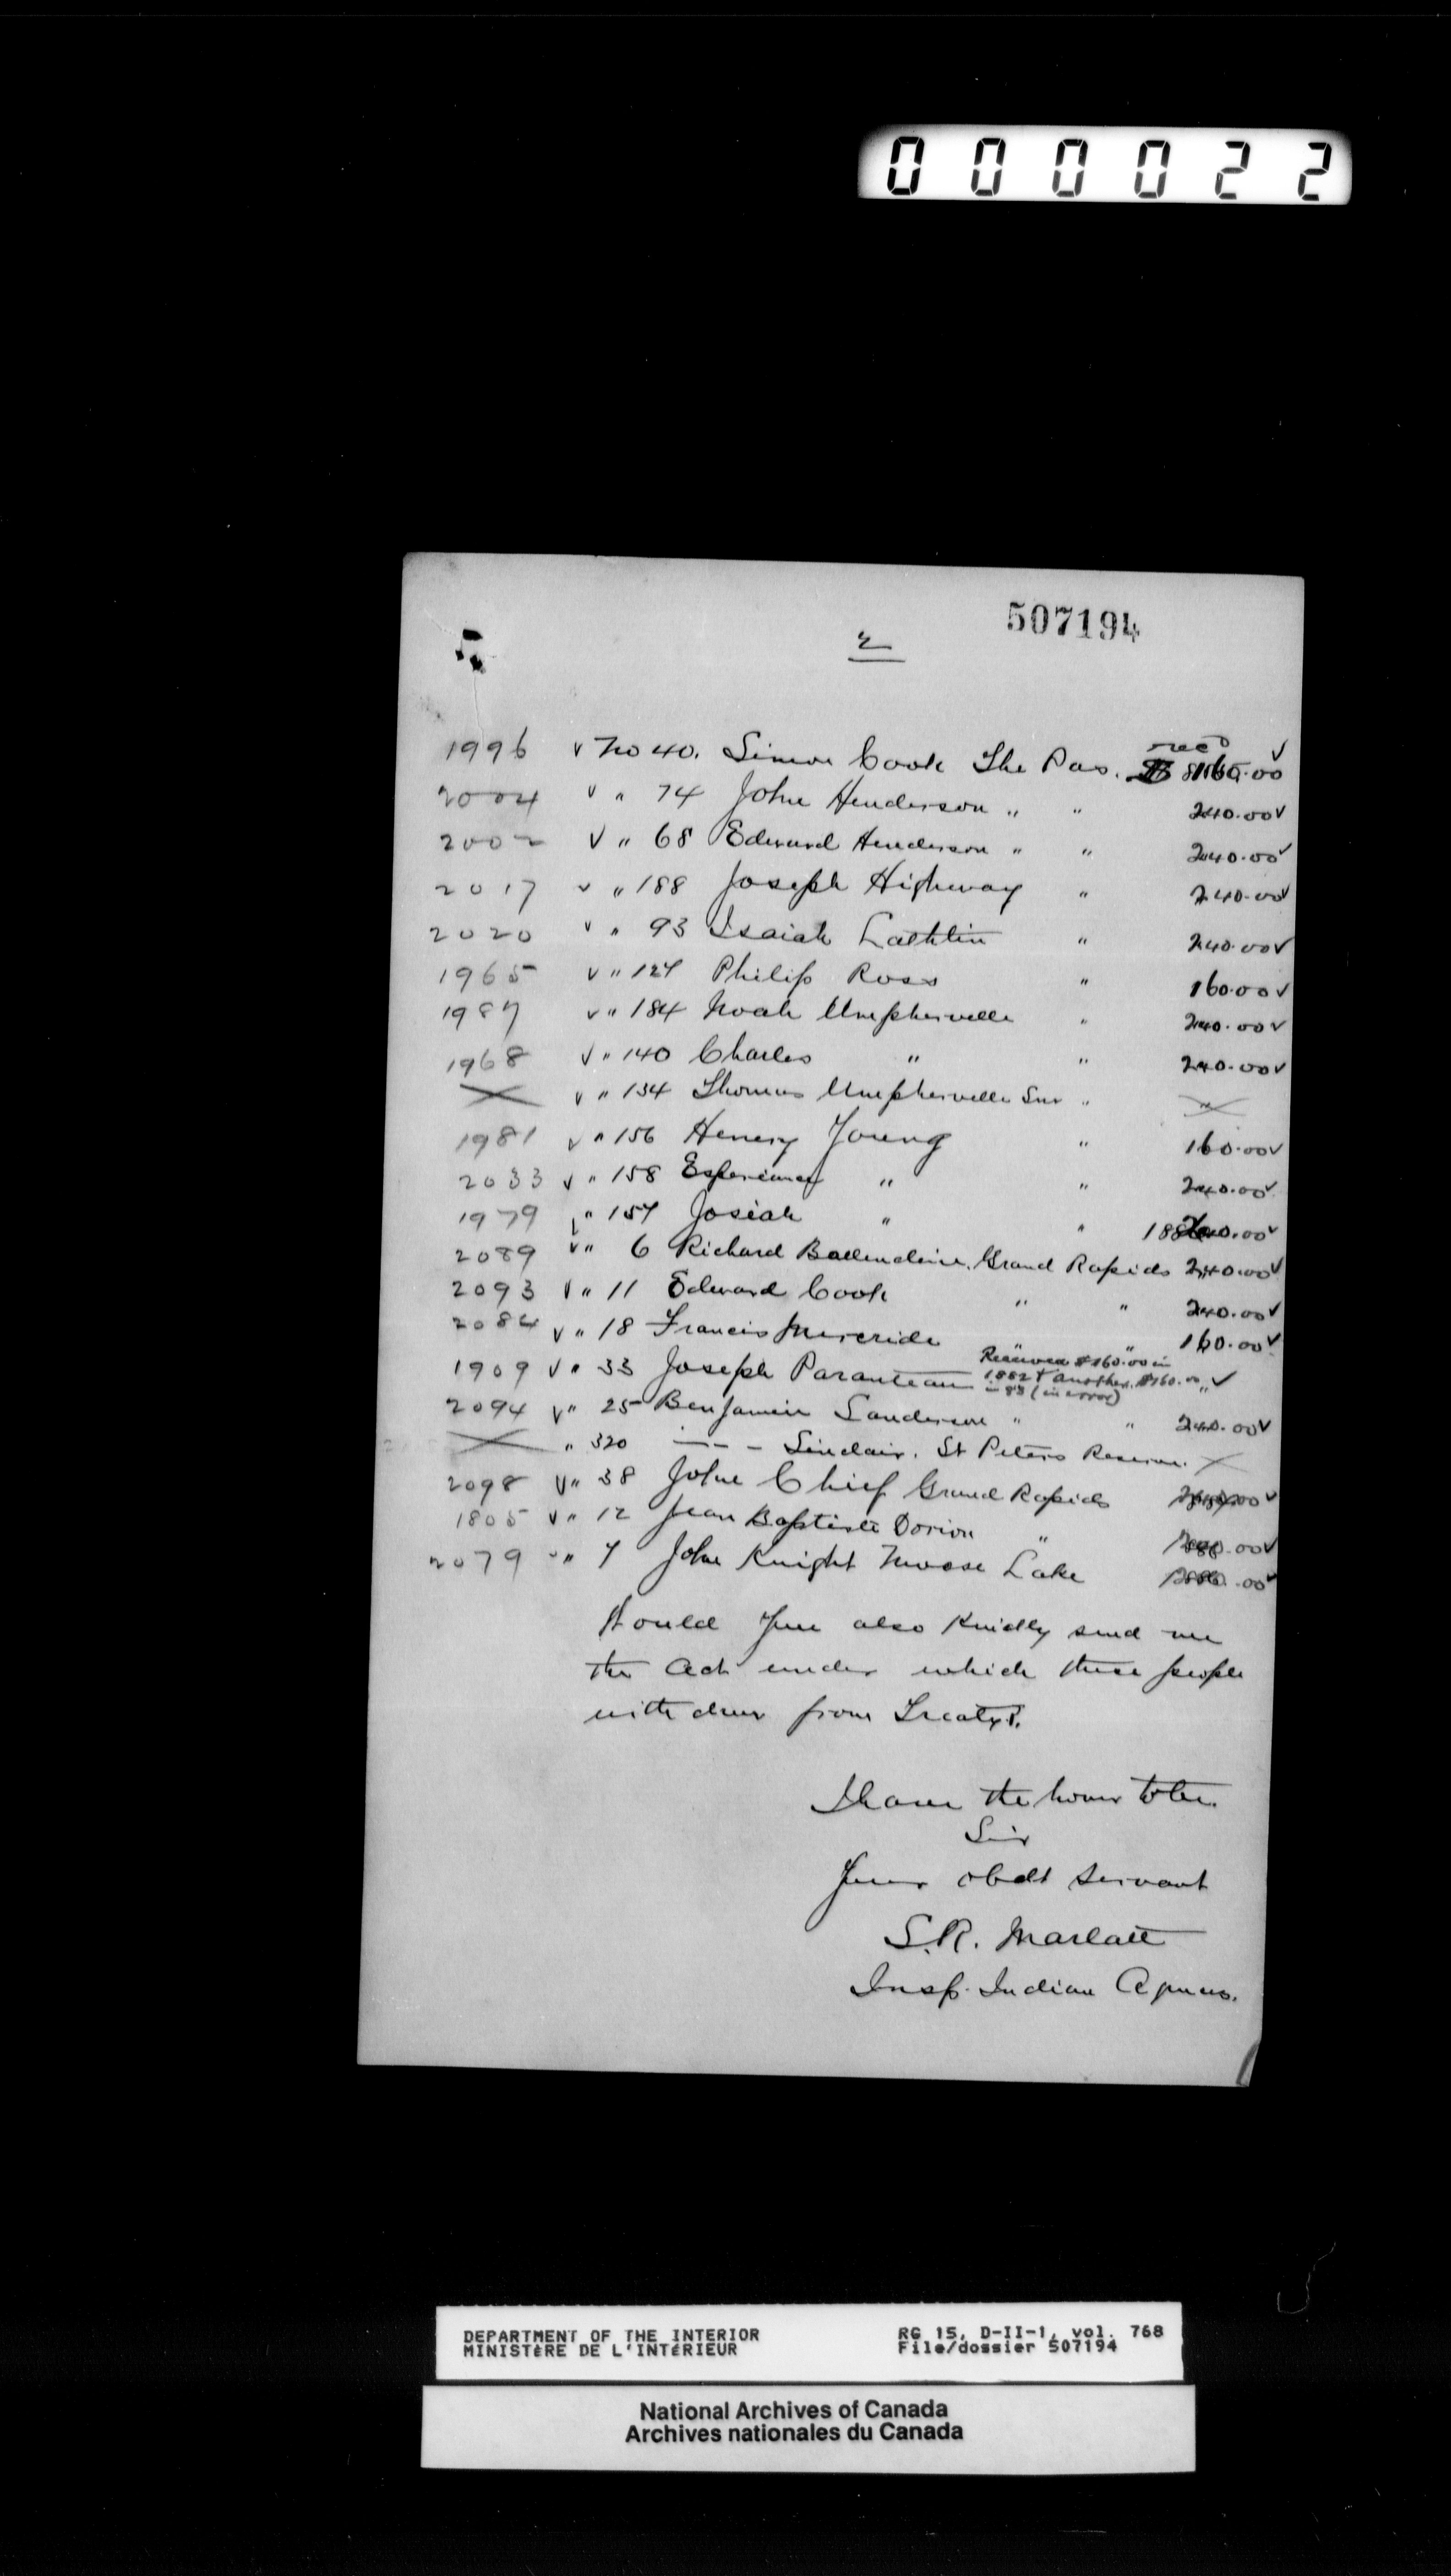 000022
507194
2
1996 √ No 40. Simon Cook The Pas. recd $160.00 √
2004 √ " 74 John Henderson " " 240.00 √
2002 √ " 68 Edward Henderson " " 240.00 √
2017 √ " 188 Joseph Highway " 240.00 √
2020 √ " 93 Isaiah Lathlin " 240.00 √
1965 √ " 127 Philip Ross " 160.00 √
1987 √ " 184 Noah Umpherville " 240.00 √
1968 √ " 140 Charles " " 240.00 √
X √ " 134 Thomas Umpherville Snr " X
1981 √ " 156 Henery Young " 160.00 √
2033 √ " 158 " " 240.00 √
1979 √ " 157 Josiah " " 240.00 √
2089 √ " 6 Richard Ballendine. Grand Rapids 240.00 √
2093 √ " 11 Edward Cook " " 240.00 √
2084 √ " 18 Francis " " 160.00 √
Received $160.00 in
1909 √ " 33 Joseph Paranteau 1882 & another $160.00 " √
in 83 (in error)
2094 √ " 25 Benjamin Sanderson " " 240.00 √
X " 320 — - - Sinclair. St Peters Reserve. X
2098 √ " 38 John Chief Grand Rapids 240.00 √
1805 √ " 12 Jean Baptiste Dorion " 240.00 √
2079 √ " 7 John Knight Moose Lake .00 √
Would you also kindly send me
the Act under which these people
withdrew from Treaty.
I have the honor to be.
Sir
Your obdt servant
S.R. Marlatt
Insp. Indian Agncs.
DEPARTMENT OF THE INTERIOR RG 15, D-II-1, vol. 768
MINISTÈRE DE L'INTÉRIEUR File/dossier 507194
National Archives of Canada
Archives nationales du Canada